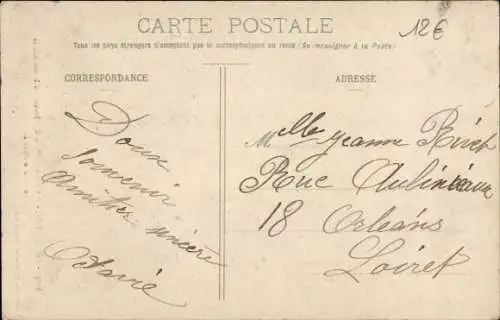 CARTE POSTALE
12€
Tous les pays étrangers n'acceptent pas la correspondance au recto (Se renseigner à la Poste)
CORRESPONDANCE
ADRESSE
Doux
souvenir
amitier sincère
Melle Jeanne
Rue
18 Orléans
Loiret